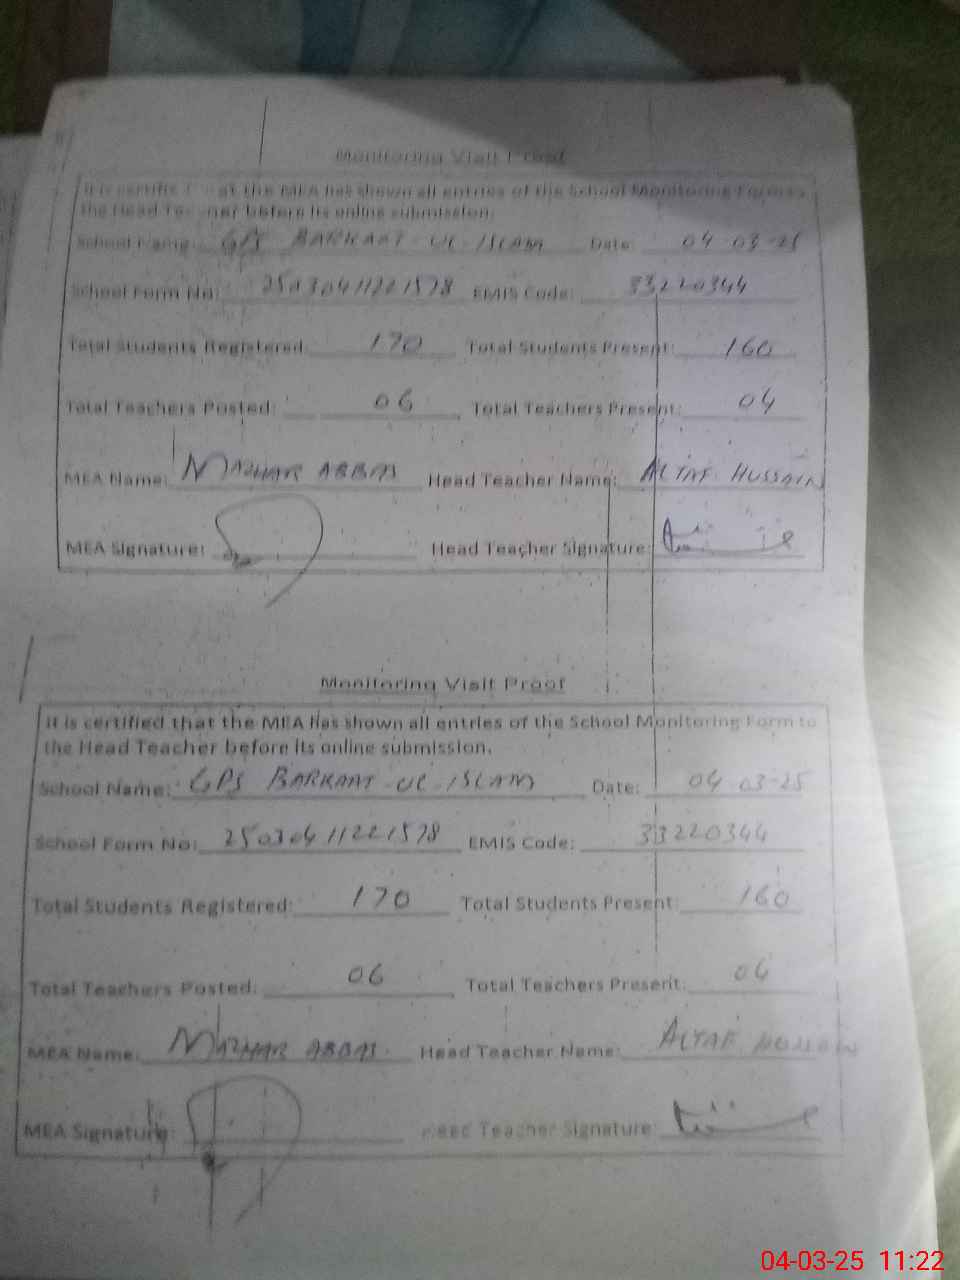 Monitoring Visit Proof
It is certified that the MEA has shown all entries of the School Monitoring Form to
the Head Teacher before its online submission.
School Name: GPS BARKAAT-UL-ISLAM Date: 04-03-25
School Form No: 25030411221578 EMIS Code: 33220344
Total Students Registered: 170 Total Students Present: 160
Total Teachers Posted: 06 Total Teachers Present: 04
MEA Name: MAZHAR ABBAS Head Teacher Name: ALTAF HUSSAIN
MEA Signature: Head Teacher Signature:
Monitoring Visit Proof
It is certified that the MEA has shown all entries of the School Monitoring Form to
the Head Teacher before its online submission.
School Name: GPS BARKAAT-UL-ISLAM Date: 04-03-25
School Form No: 25030411221578 EMIS Code: 33220344
Total Students Registered: 170 Total Students Present: 160
Total Teachers Posted: 06 Total Teachers Present: 04
MEA Name: MAZHAR ABBAS Head Teacher Name: ALTAF HUSSAIN
MEA Signature: Head Teacher Signature:
04-03-25 11:22